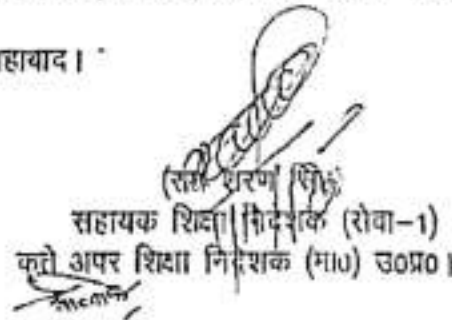 हाबाद।
(राम शरण सिंह)
सहायक शिक्षा निदेशक (रोवा-1)
कृते अपर शिक्षा निदेशक (मा0) उ0प्र0।